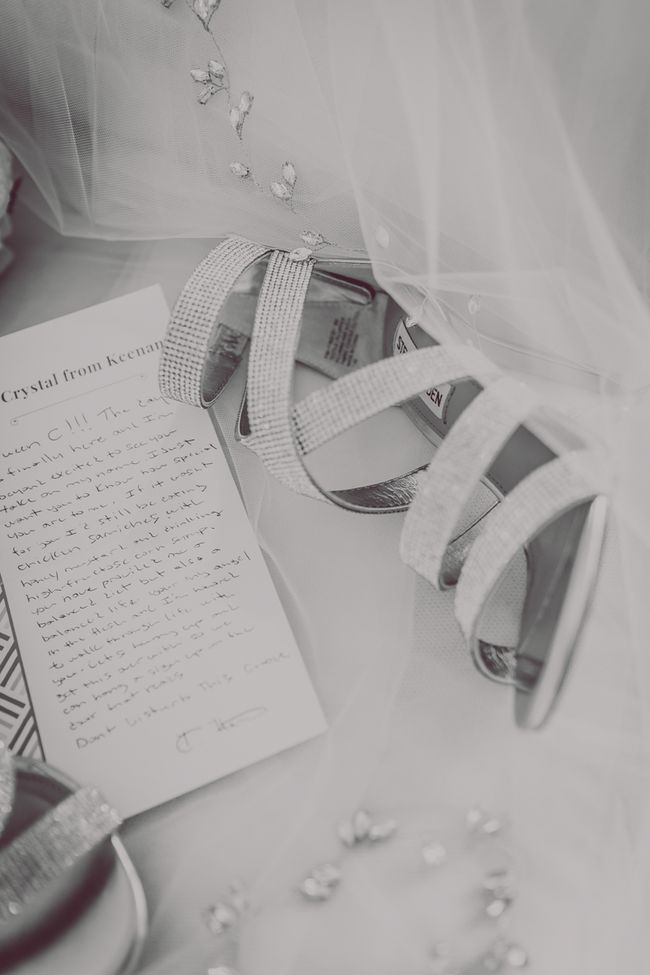 Crystal from Keenan
ween C!!! The
finally here and I'm
beyond excited to see you
take on my name. I just
want you to know how special
you are to me. If it wasn't
for you I'd still be eating
chicken samiches with
honey mustard and drinking
high fructose corn syrup.
you have provided me a
balanced diet but also a
balanced life. your my angel
in the flesh and I'm honored
to walk through life with
you. Lets hurry up and
get this over with so we
can hang a sign up on the
door that reads
Dont Disturb This Groove
STE
DEN